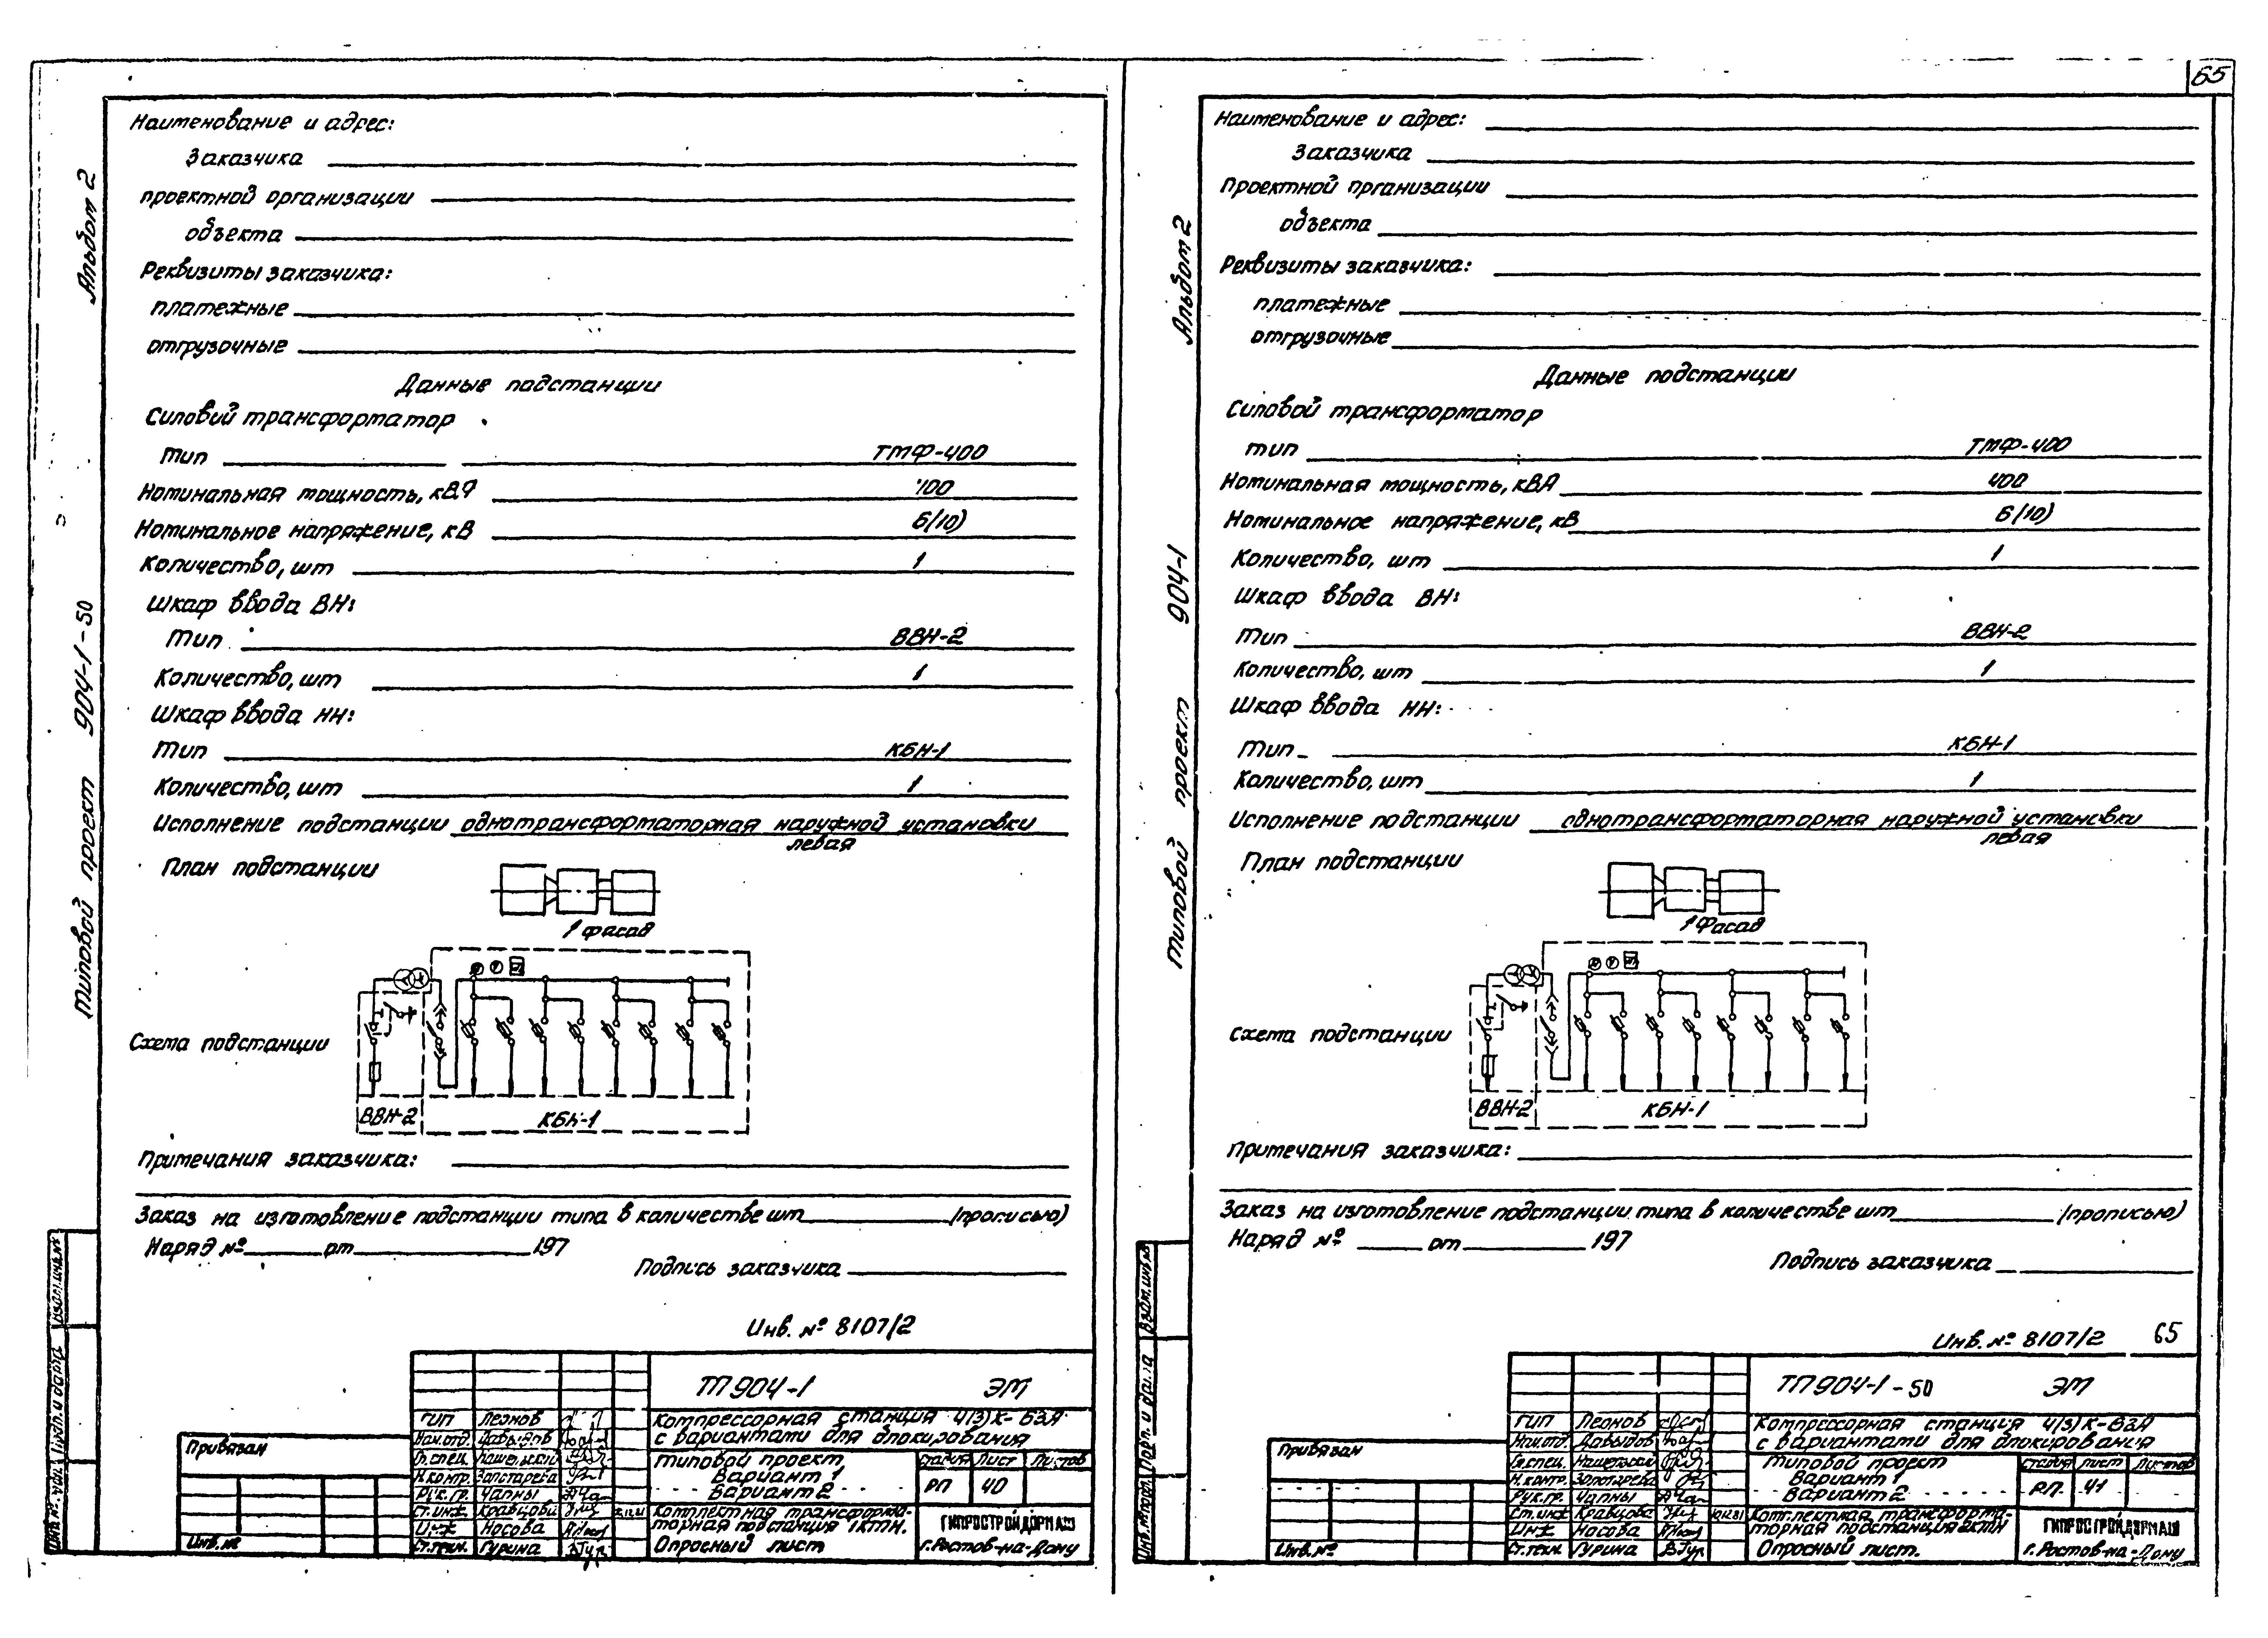 65
Альбом 2
Типовой проект 904-1-50
Наименование и адрес:
Заказчика
проектной организации
объекта
Реквизиты заказчика:
платежные
отгрузочные
Данные подстанции
Силовой трансформатор
Тип ТМФ-400
Номинальная мощность, кВА 400
Номинальное напряжение, кВ 6(10)
Количество, шт 1
Шкаф ввода ВН:
Тип ВВН-2
Количество, шт 1
Шкаф ввода НН:
Тип КБН-1
Количество, шт 1
Исполнение подстанции однотрансформаторная наружной установки
левая
План подстанции
1 фасад
Схема подстанции
ВВН-2 КБН-1
Примечания заказчика:
Заказ на изготовление подстанции типа в количестве шт (прописью)
Наряд № от 197
Подпись заказчика
Инв. № 8107/2
ТП 904-1 ЭМ
Компрессорная станция 4(3)К-63А
с вариантами для блокирования
Типовой проект
Вариант 1
Вариант 2
Стадия Лист Листов
РП 40
Комплектная трансформа-
торная подстанция 1КТН.
Опросный лист
ГИПРОСТРОЙДОРМАШ
г. Ростов-на-Дону
ГИП Леонов
Нач.отд. Давыдов
Гл.спец.
Н.контр. Золотарева
Рук.гр. Чапны
Ст.инж Кравцова
Инж Носова
Ст.техн. Гурина
Привязан
Инв.№
Взам.инв.№
Подп. и дата
Альбом 2
Типовой проект 904-1
Наименование и адрес:
Заказчика
Проектной организации
объекта
Реквизиты заказчика:
платежные
отгрузочные
Данные подстанции
Силовой трансформатор
тип ТМФ-400
Номинальная мощность, кВА 400
Номинальное напряжение, кВ 6(10)
Количество, шт 1
Шкаф ввода ВН:
Тип ВВН-2
Количество, шт 1
Шкаф ввода НН:
Тип КБН-1
Количество, шт 1
Исполнение подстанции однотрансформаторная наружной установки
левая
План подстанции
1 Фасад
Схема подстанции
ВВН-2 КБН-1
Примечания заказчика:
Заказ на изготовление подстанции типа в количестве шт (прописью)
Наряд № от 197
Подпись заказчика
Инв. № 8107/2 65
ТП 904-1-50 ЭМ
Компрессорная станция 4(3)К-63А
с вариантами для блокирования
Типовой проект
Вариант 1
Вариант 2
Стадия Лист Листов
РП. 41
Комплектная трансформа-
торная подстанция 2КТН
Опросный лист.
ГИПРОСТРОЙДОРМАШ
г. Ростов-на-Дону
ГИП Леонов
Нач.отд. Давыдов
Гл.спец.
Н.контр. Золотарева
Рук.гр. Чапны
Ст.инж Кравцова
Инж Носова
Ст.техн. Гурина
Привязан
Инв.№
Взам.инв.№
Подп. и дата
Инв.№подл.